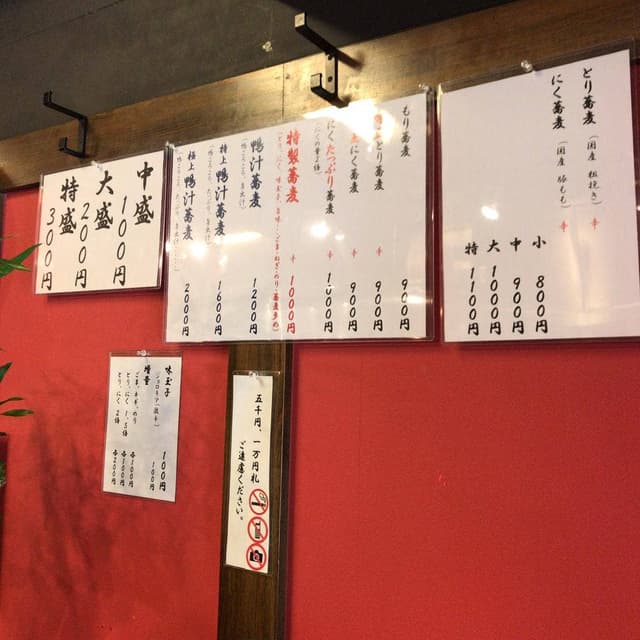 とり蕎麦（国産 粗挽き）
にく蕎麦（国産 豚もも）
小 800円
中 900円
大 1000円
特 1100円
もり蕎麦 900円
とり蕎麦 900円
にく蕎麦 900円
にくたっぷり蕎麦 1000円
（にくの量2倍）
特製蕎麦 1000円
鴨汁蕎麦 1200円
特上鴨汁蕎麦 1600円
極上鴨汁蕎麦 2000円
中盛 100円
大盛 200円
特盛 300円
味玉子 100円
ジョロキア（激辛） 100円
増量
ごま、ネギ、のり +100円
とり、にく 1.5倍 +100円
とり、にく 2倍 +200円
五千円、一万円札
ご遠慮ください。